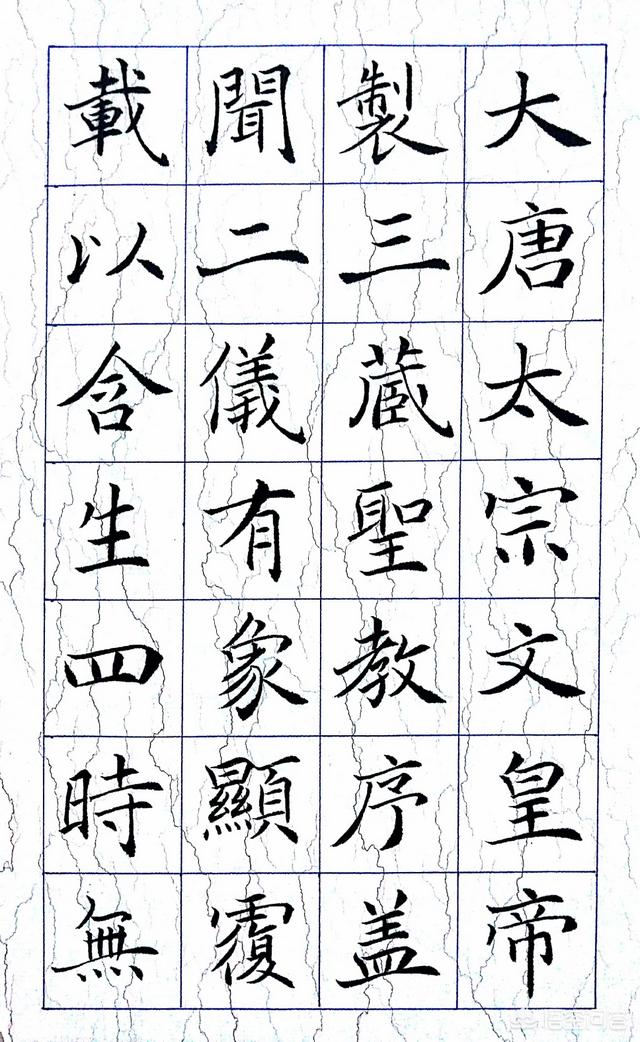 大唐太宗文皇帝
製三蔵聖教序盖
聞二儀有象顯覆
載以含生四時無